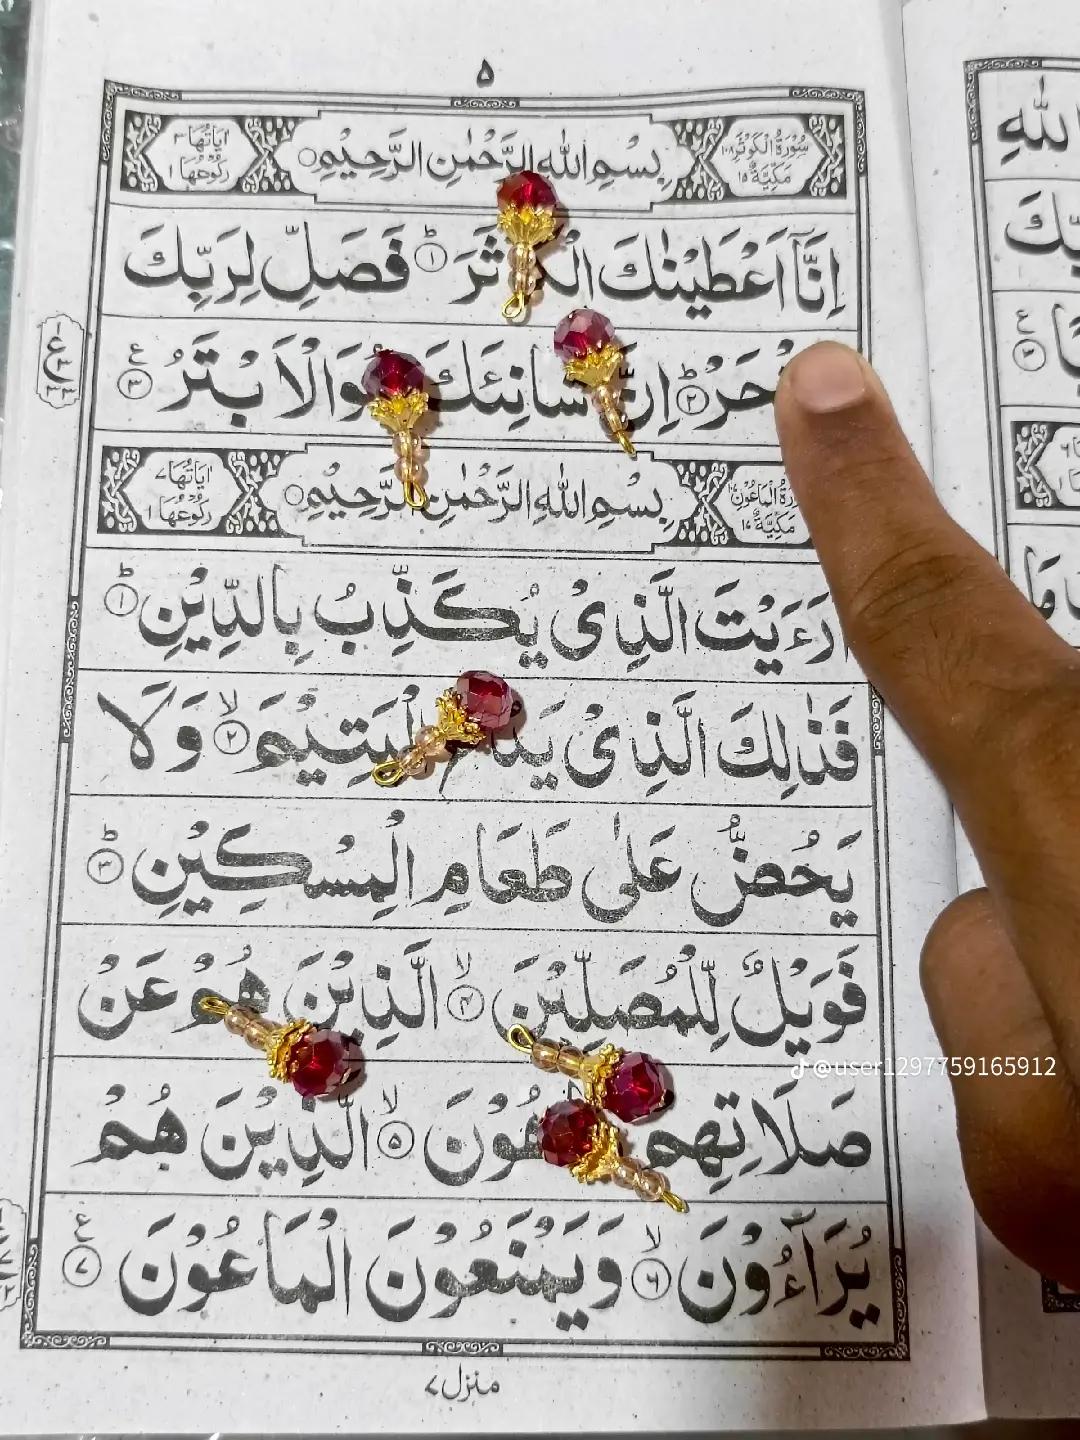 ۵
سُوْرَةُ الْكَوْثَرِ ١٠٨ مَكِّيَّةٌ ١٥
بِسْمِ اللّٰهِ الرَّحْمٰنِ الرَّحِيْمِ
اٰيَاتُهَا ٣ رُكُوْعُهَا ١
اِنَّاۤ اَعْطَيْنٰكَ الْكَوْثَرَ ۱ فَصَلِّ لِرَبِّكَ
اِنَّ شَانِئَكَ هُوَالْاَبْتَرُ ۳
مَكِّيَّةٌ ١٧
بِسْمِ اللّٰهِ الرَّحْمٰنِ الرَّحِيْمِ
اٰيَاتُهَا ٧ رُكُوْعُهَا ١
اَرَءَيْتَ الَّذِىْ يُكَذِّبُ بِالدِّيْنِ ۱
فَذٰلِكَ الَّذِىْ الْيَتِيْمَ ۲ وَلَا
يَحُضُّ عَلٰى طَعَامِ الْمِسْكِيْنِ ۳
فَوَيْلٌ لِّلْمُصَلِّيْنَ ۴ الَّذِيْنَ هُمْ عَنْ
صَلَاتِهِمْ ۵ الَّذِيْنَ هُمْ
يُرَآءُوْنَ ۶ وَيَمْنَعُوْنَ الْمَاعُوْنَ ۷
منزل ٧
@user1297759165912